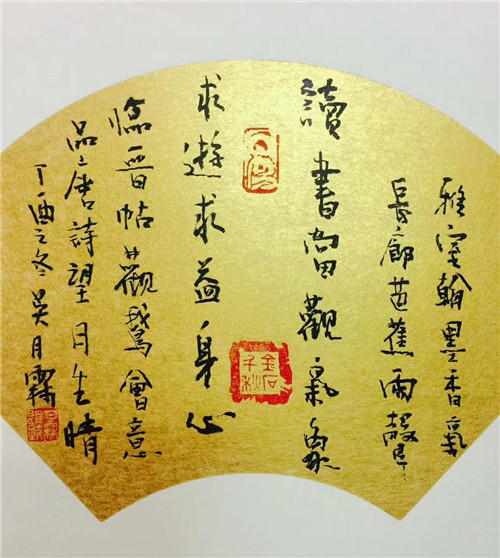 雅室翰墨香氣
長廊芭蕉雨聲
讀書當觀氣象
求遊求益身心
臨晋帖觀鵞會意
品唐詩望月生晴
丁酉之冬吴月霖
金石千秋